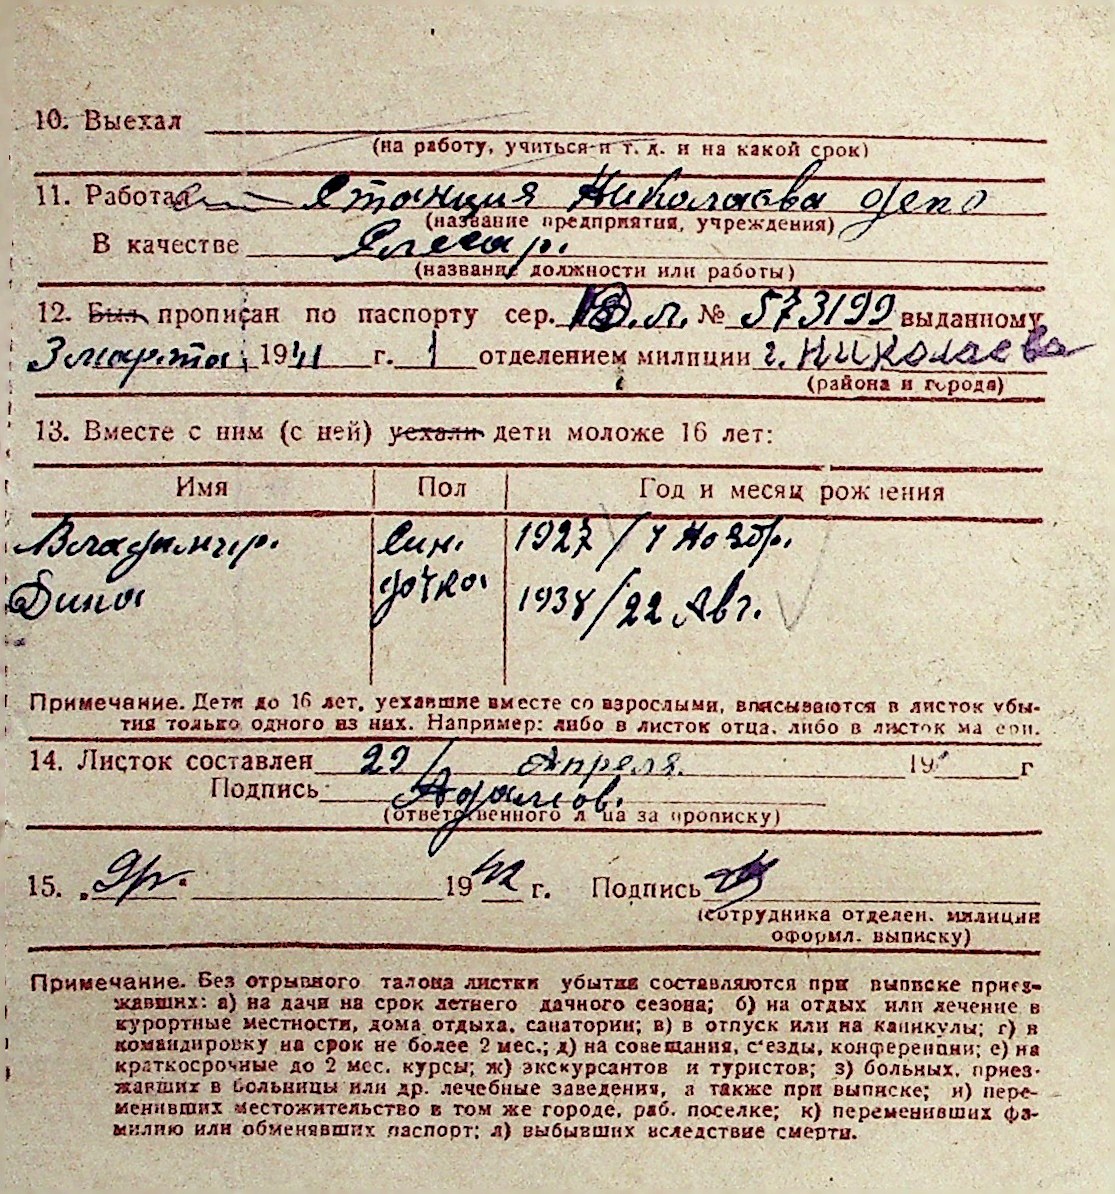 10. Выехал
(на работу, учиться и т. д. и на какой срок)
11. Работает Станция Николаева депо
(название предприятия, учреждения)
В качестве Слесар.
(название должности или работы)
12. Был прописан по паспорту сер. № 573199 выданному
3 марта 1941 г. 1 отделением милиции г. Николаева
(района и города)
13. Вместе с ним (с ней) уехали дети моложе 16 лет:
Имя Пол Год и месяц рождения
Владимир. Син. 1927 / 7 Ноябр.
Дина дочка 1938 / 22 Авг.
Примечание. Дети до 16 лет, уехавшие вместе со взрослыми, вписываются в листок убы-
тия только одного из них. Например: либо в листок отца, либо в листок матери.
14. Листок составлен 29 / Апреля 19 г
Подпись Адамов.
(ответственного лица за прописку)
15. 19 42 г. Подпись
(сотрудника отделен. милиции
оформл. выписку)
Примечание. Без отрывного талона листки убытия составляются при выписке приез-
жавших: а) на дачи на срок летнего дачного сезона; б) на отдых или лечение в
курортные местности, дома отдыха, санатории; в) в отпуск или на каникулы; г) в
командировку на срок не более 2 мес.; д) на совещания, с'езды, конференции; е) на
краткосрочные до 2 мес. курсы; ж) экскурсантов и туристов; з) больных, приез-
жавших в больницы или др. лечебные заведения, а также при выписке; и) пере-
менивших местожительство в том же городе, раб. поселке; к) переменивших фа-
милию или обменявших паспорт; л) выбывших вследствие смерти.